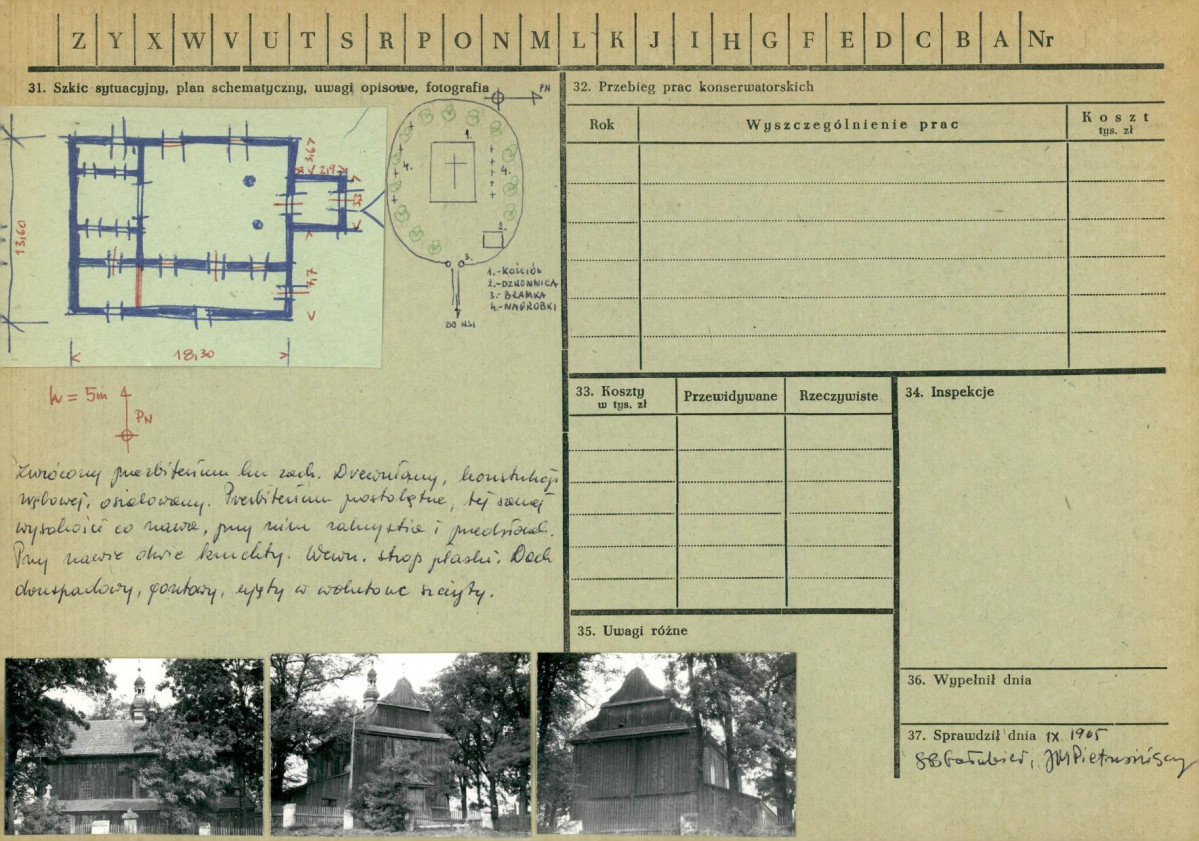 Z Y X W V U T S R P O N M L K J I H G F E D C B A Nr
31. Szkic sytuacyjny, plan schematyczny, uwagi opisowe, fotografia
PN
3,67
2,97
13,60
7,7
18,30
1.
4.
4.
2.
3.
1.-KOŚCIÓŁ
2.-DZWONNICA
3.- BRAMKA
4.-NAGROBKI
DO WSI
h = 5m
PN
Zwrócony prezbiterium ku zach. Drewniany, konstrukcji
węgłowej, oszalowany. Prezbiterium prostokątne, tej samej
wysokości co nawa, przy nim zakrystia i przedsionek.
Przy nawie dwie kruchty. Wewn. strop płaski. Dach
dwuspadowy, gontowy, ujęty w wolutowe szczyty.
32. Przebieg prac konserwatorskich
Rok
Wyszczególnienie prac
Koszt
tys. zł
33. Koszty
w tys. zł
Przewidywane
Rzeczywiste
34. Inspekcje
35. Uwagi różne
36. Wypełnił dnia
37. Sprawdził dnia IX. 1965